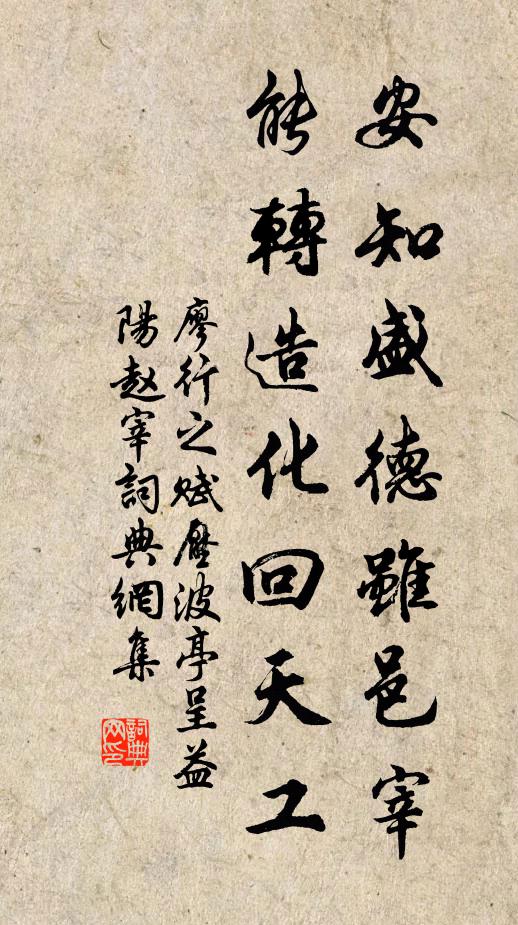 安知盛德雖邑宰
能轉造化回天工
廖行之賦壓波亭呈益
陽赵宰詞典網集
詞典
网印